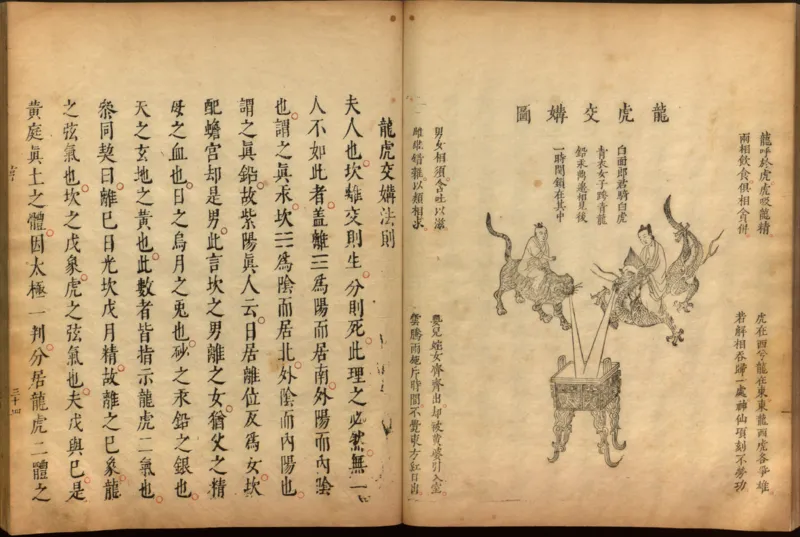 龍虎交媾圖
龍呼於虎虎吸龍精
兩相飲食俱相貪併
虎在西兮龍在東東龍西虎各爭雄
若解相吞歸一處神仙頃刻不勞功
白面郎君騎白虎
青衣女子跨青龍
鉛汞鼎邊相見後
一時關鎖在其中
男女相須含吐以滋
雌雄錯雜以類相求
嬰兒姹女齊齊出却被黃婆引入室
雲騰雨施片時間不覺東方紅日出
龍虎交媾法則
夫人也坎離交則生分則死此理之必然無一
人不如此者蓋離☲爲陽而居南外陽而內陰
也謂之眞汞坎☵爲陰而居北外陰而內陽也
謂之眞鉛故紫陽眞人云日居離位反爲女坎
配蟾宮却是男此言坎之男離之女猶父之精
母之血也日之烏月之兔也砂之汞鉛之銀也
天之玄地之黃也此數者皆指示龍虎二氣也
叅同契曰離巳日光坎戊月精故離之巳象龍
之弦氣也坎之戊象虎之弦氣也夫戊與巳是
黃庭眞土之體因太極一判分居龍虎二體之
三十四